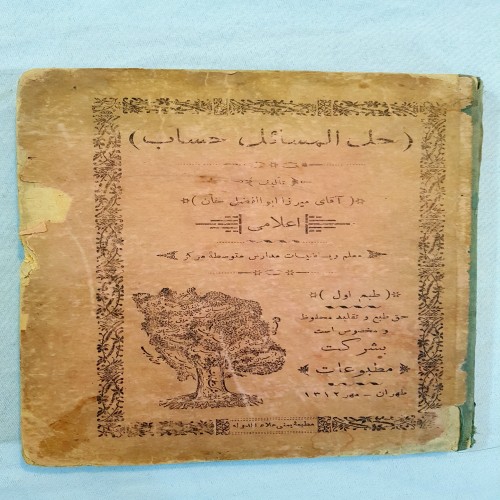 (حل المسائل حساب)
تألیف
(آقای میرزا ابوالفضل خان)
اعلامی
معلم ریاضیات مدارس متوسطهٔ مرکز
(طبع اول)
حق طبع و تقلید محفوظ
و مخصوص است
بشرکت
مطبوعات
طهران - مهر ۱۳۱۲